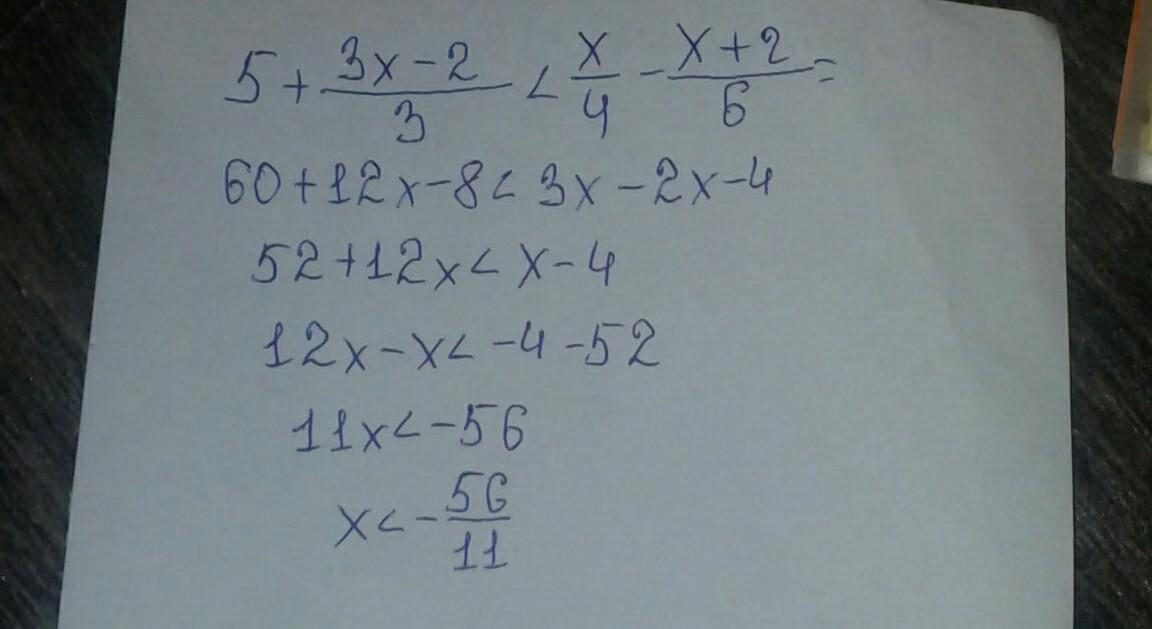 5 + (3x - 2)/3 < x/4 - (x + 2)/6 =
60 + 12x - 8 < 3x - 2x - 4
52 + 12x < x - 4
12x - x < -4 - 52
11x < -56
x < -56/11